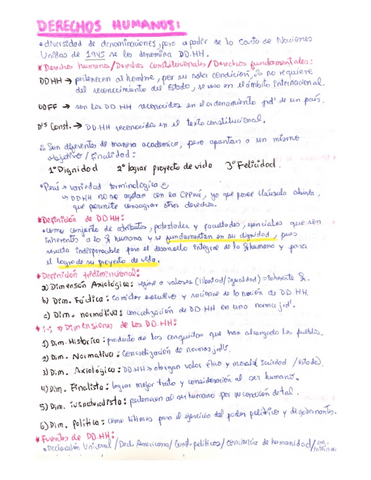 DERECHOS HUMANOS:
•diversidad de denominaciones, pero a partir de la Carta de Naciones
Unidas de 1945 se les denomina DD.HH.
*Derechos humanos/Derechos constitucionales/Derechos fundamentales:
DD.HH → pertenecen al hombre, por su sola condición, no requiere
del reconocimiento del Estado, se usa en el ámbito internacional.
DDFF → son los DD HH reconocidos en el ordenamiento jdº de un país.
Dºs Const. → DD.HH reconocidos en el texto constitucional.
Son diferentes de manera académica, pero apuntan a un mismo
objetivo / finalidad:
1º Dignidad 2º lograr proyecto de vida 3º Felicidad.
•Perú → variedad terminológica
→ DD.HH NO se agotan con la CPPerú, ya que posee cláusula abierta,
que permite consagrar otros derechos.
*Definición de DD.HH:
Como conjunto de atributos, potestades y facultades, esenciales que son
inherentes a la humana y se fundamentan en su dignidad, pues
resulta indispensable para el desarrollo integral de la humana y para
el logro de su proyecto de vida.
*Definición tridimensional:
a) Dimensión Axiológica: valores (libertad/igualdad) =
b) Dim. Fáctica: carácter evolutivo y de la noción de DD.HH
c) Dim. normativa: concretización de DD.HH en una norma jdº.
*Dimensiones de los DD.HH:
1) Dim. Histórica: producto de las conquistas que han alcanzado los pueblos.
2) Dim. Normativa: concretización de normas jdºs.
3) Dim. Axiológica: DD.HH → otorgan valor ético y moral (sociedad / Estado).
4) Dim. Finalista: lograr mejor trato y consideración al ser humano.
5) Dim. iusnaturalista: pertenecen al ser humano por su condición de tal.
6) Dim. Política: como límites para el ejercicio del poder político y de gobernantes.
*Fuentes de DD.HH:
•Declaración Universal / Decl. Americana / Const. políticas / conciencia de humanidad /